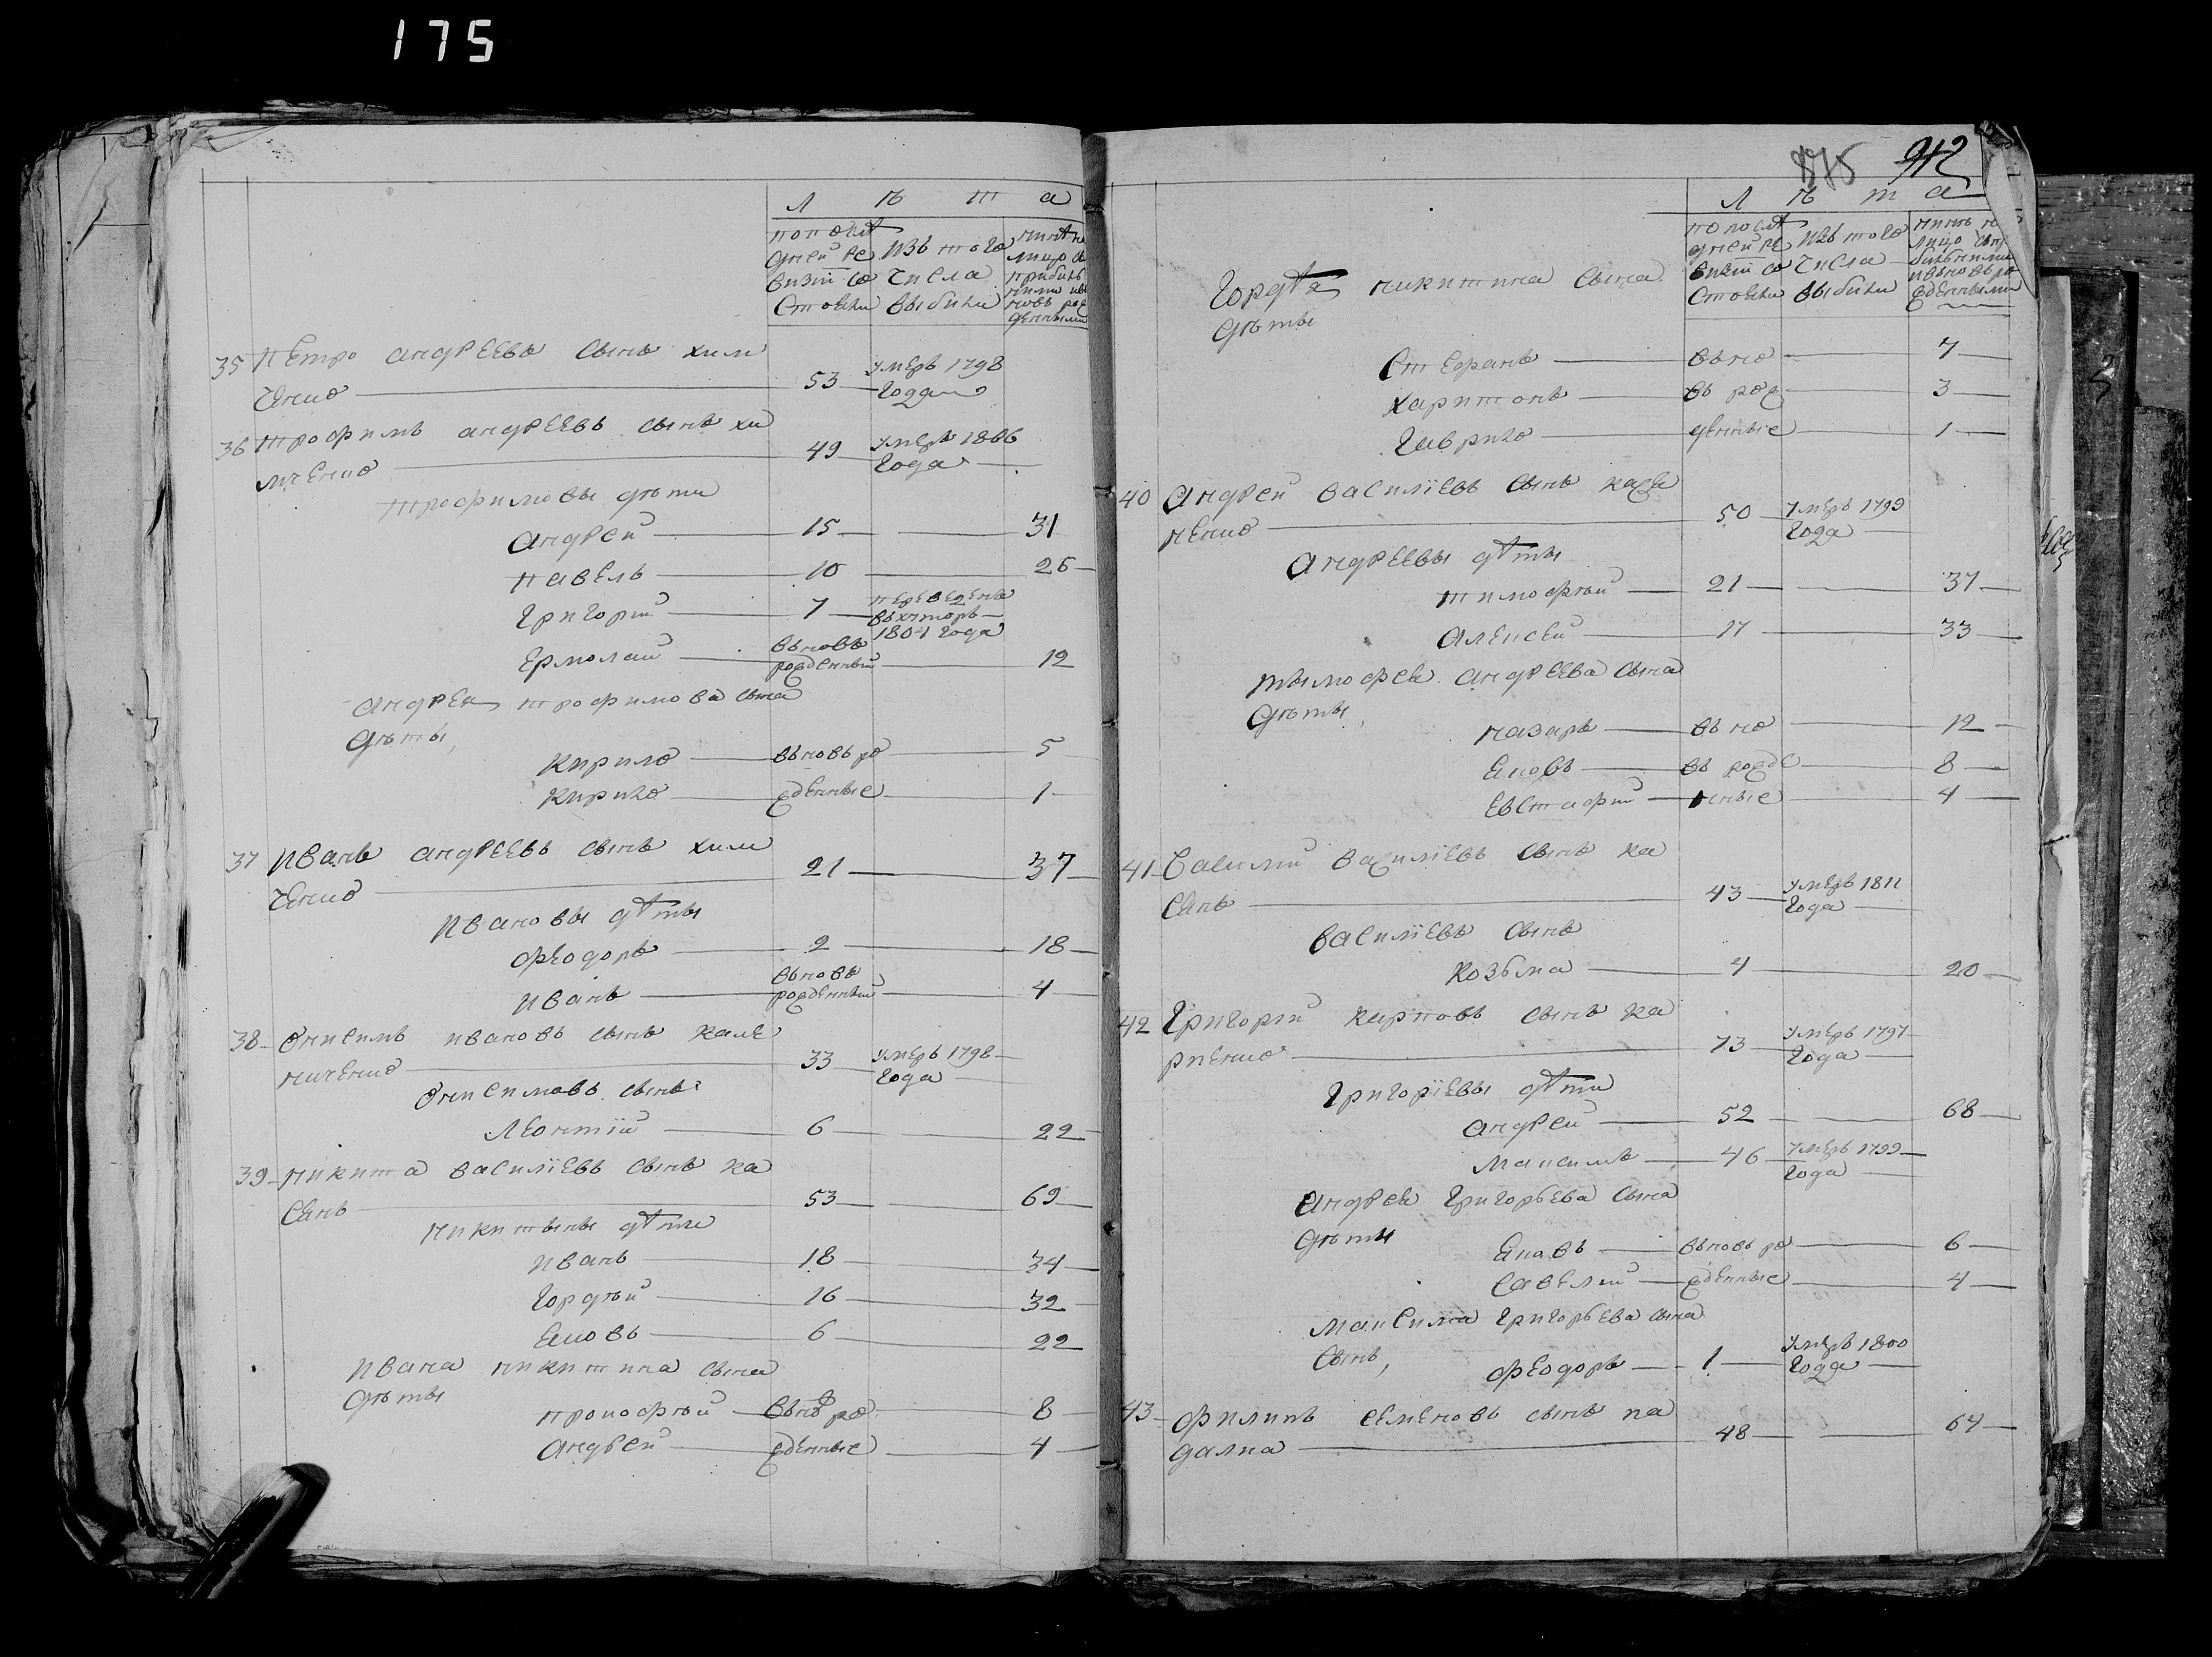 175
Л ѣ т а
по послѣ
дней ре
визіи со
стояло
изъ того
числа
выбыло
нынѣ на
лицо съ
прибыв
шими и в
новь рож
денными
35 Петро Андреевъ сынъ Хим
ченко 53 умеръ 1798
года
36 Трофимъ Андреевъ сынъ Хи
мченко 49 умеръ 1806
года
Трофимовы дѣти
Андрей 15 31
Павелъ 10 26
Григорий 7 переведенъ
въ хуторъ
1804 года
Ермолай вновь
рожденный 12
Андрея Трофимова сына
дѣты,
Кирило вьновь ро 5
Кирико жденные 1
37 Иванъ Андреевъ сынъ Хим
ченко 21 37
Ивановы дѣты
Феодоръ 2 18
Иванъ вьновь
рожденный 4
38 Онисимъ Ивановъ сынъ Кале
ниченко 33 умеръ 1798
года
Онисимовъ сынъ
Леонтій 6 22
39 Никита Василіевъ сынъ Ка
сянъ 53 69
Никитыны дѣти
Иванъ 18 34
Гордѣй 16 32
Яковъ 6 22
Ивана Никитина сына
дѣты
Прокофѣй вьнов ро 8
Андрей жденные 4
175 942
Л ѣ т а
по послѣ
дней ре
визіи со
стояло
изъ того
числа
выбыло
нынѣ на
лицо съ при
бывшими
и вьновь ро
жденными
Гордѣя Никитина сына
дѣты
Стефанъ вьно 7
Харитонъ вь рож 3
Гаврило денные 1
40 Андрей Василіевъ сынъ Касья
ненко 50 умеръ 1799
года
Андреевы дѣты
Тимофѣй 21 37
Алексей 17 33
Тымофея Андреева сына
дѣты,
Назаръ вьно 12
Яковъ вь рожде 8
Евстафий нные 4
41 Василий Василіевъ сынъ Ка
сянъ 43 умеръ 1811
года
Василіевъ сынъ
Козьма 4 20
42 Григорій Карповъ сынъ Ка
рпенко 73 умеръ 1797
года
Григоріевы дѣти
Андрей 52 68
Максимъ 46 умеръ 1799
года
Андрея Григорьева сына
дѣты
Яковъ вьновь ро 6
Савелий жденные 4
Максима Григорьева сына
сынъ,
Феодоръ 1 умеръ 1800
года
43 Филипъ Семеновъ сынъ Па
далка 48 64